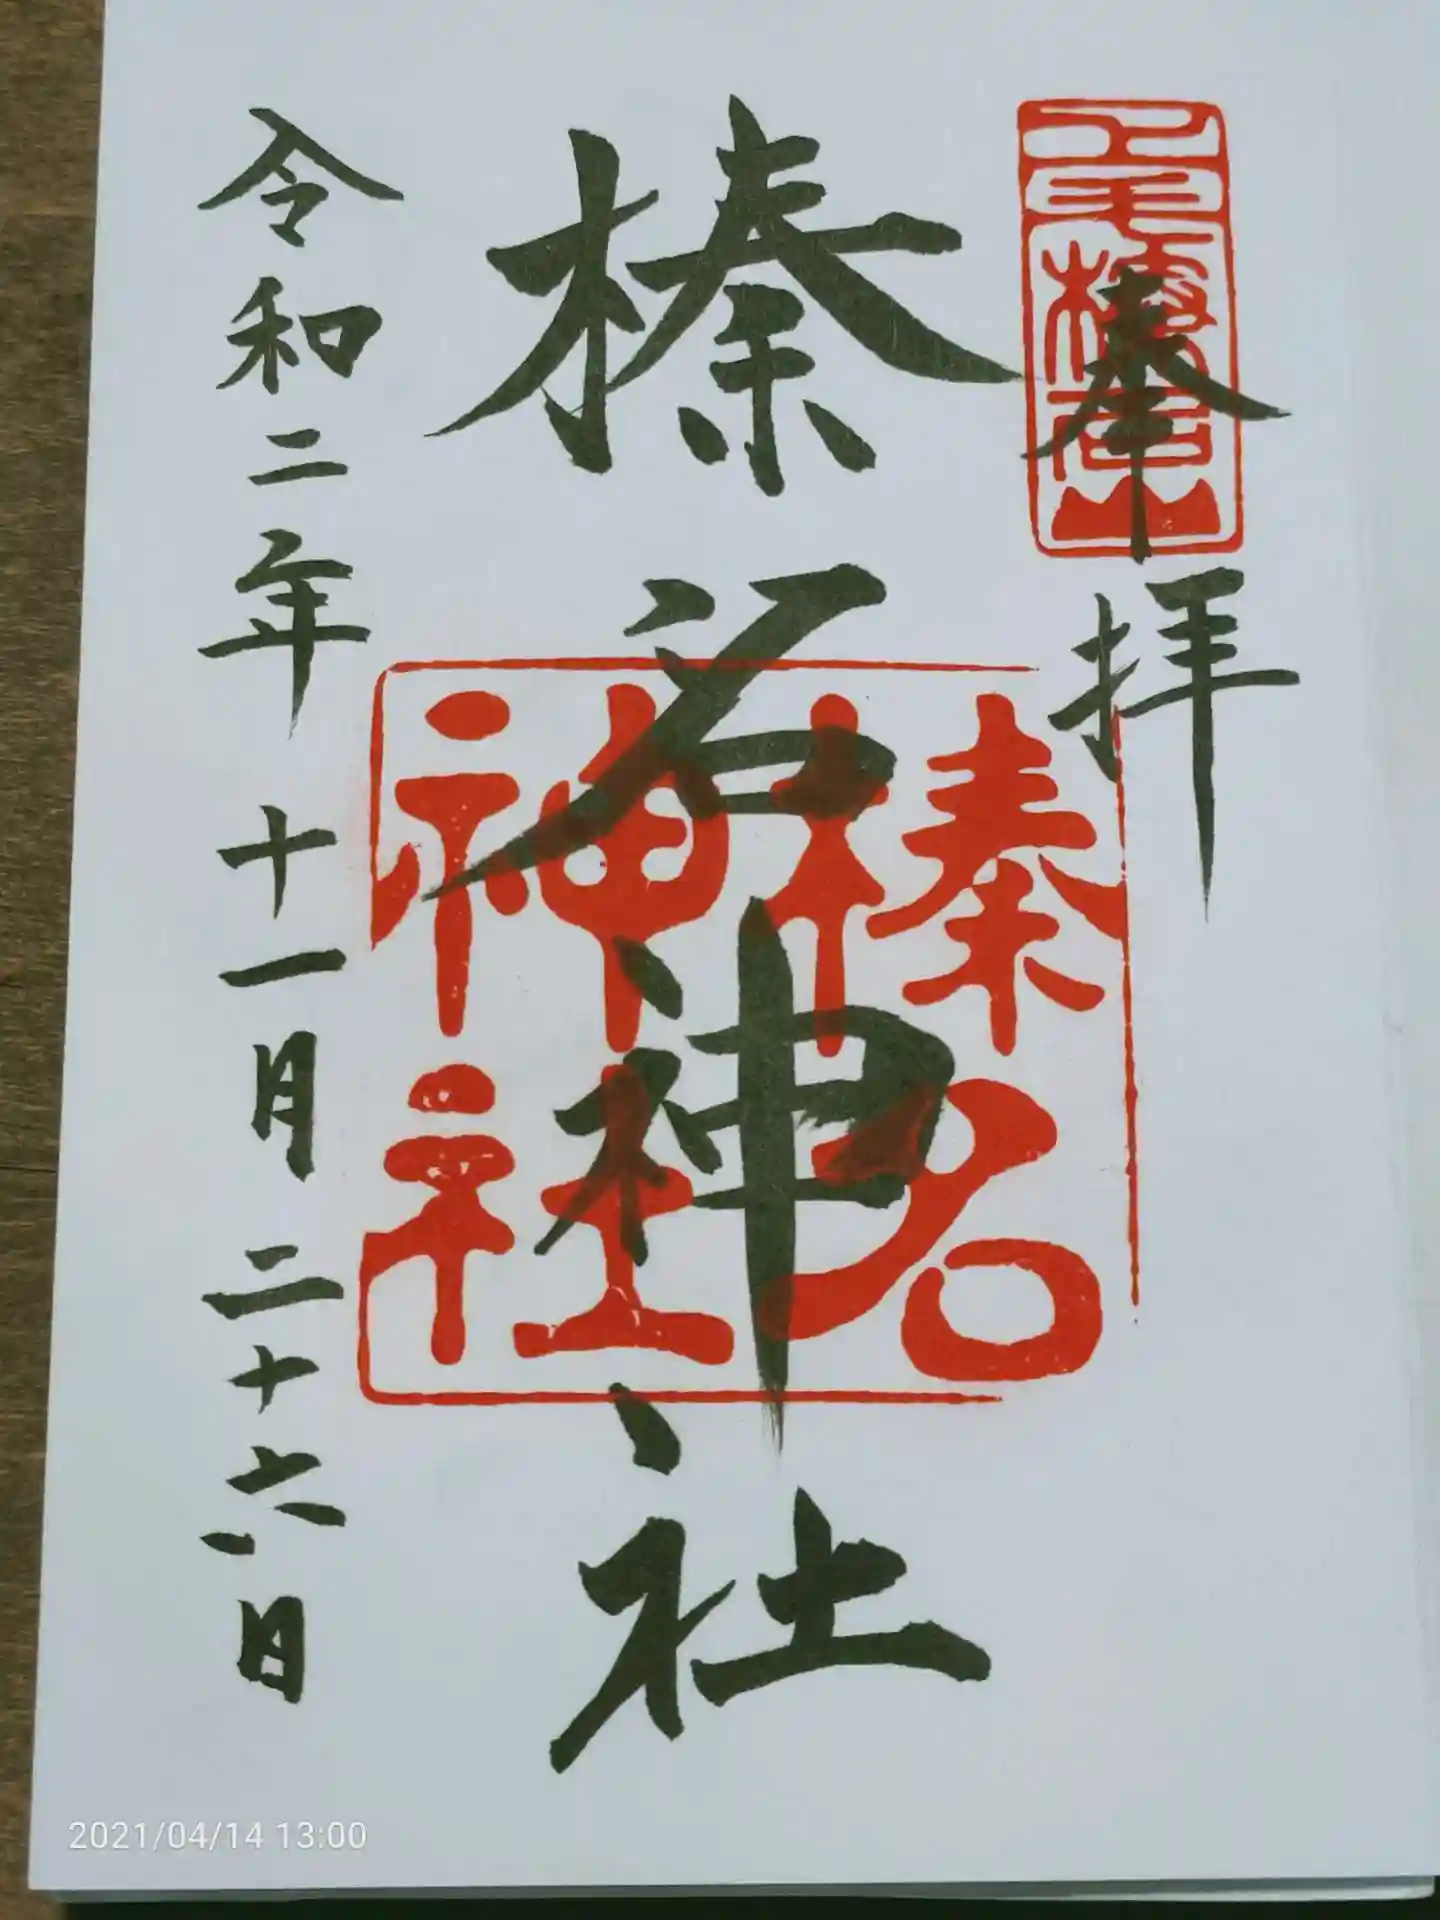 奉拝
榛名神社
榛名
神社
令和二年 十一月 二十六日
2021/04/14 13:00